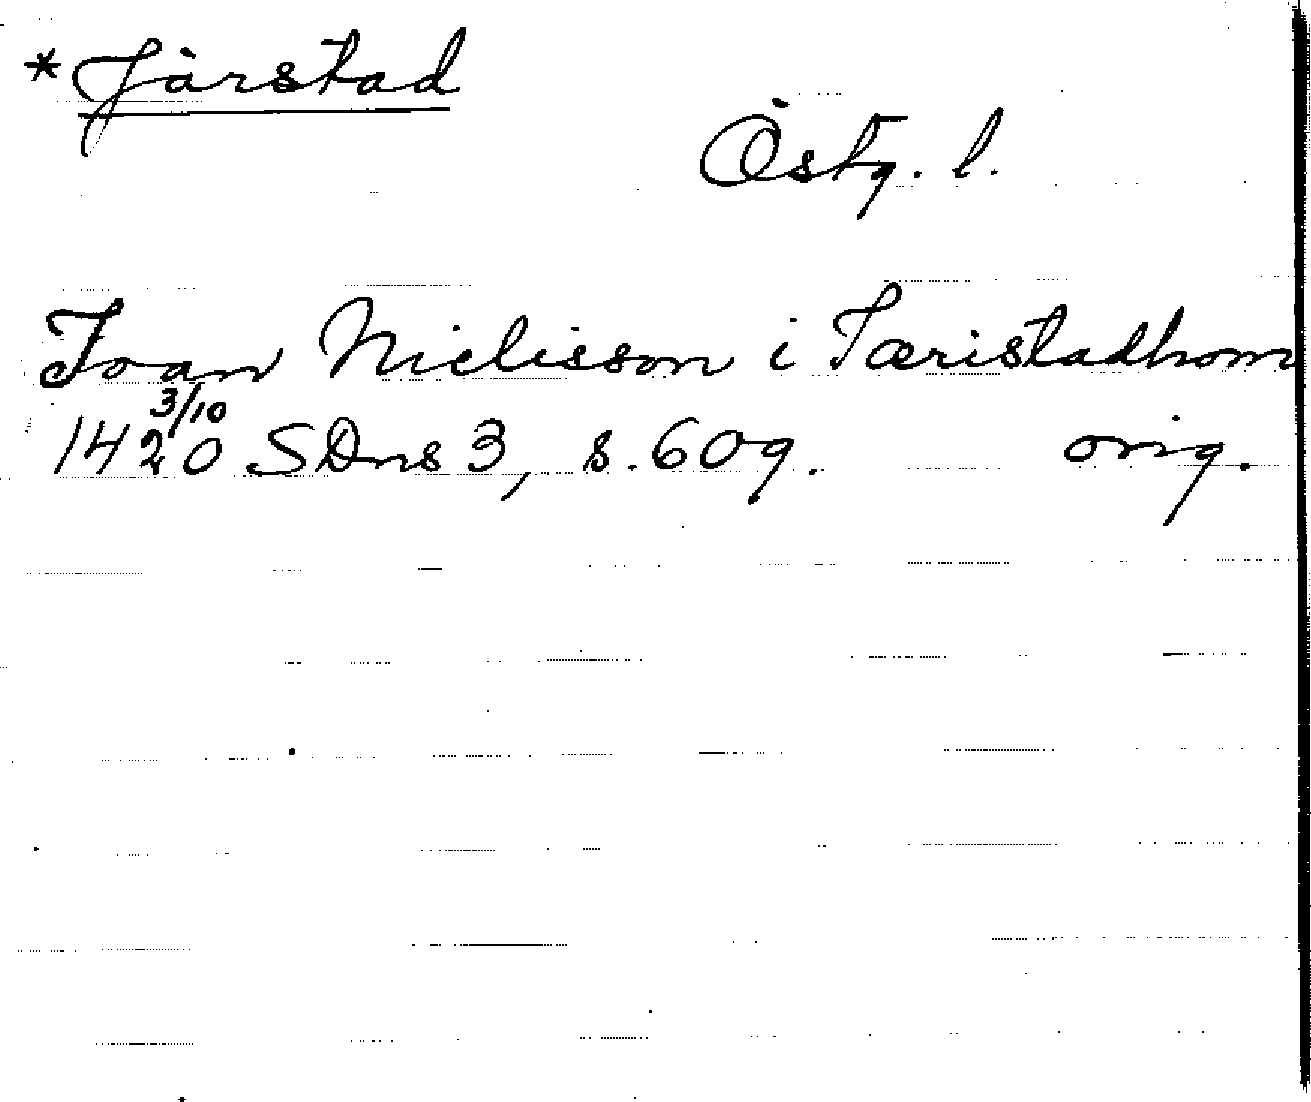 *Järstad
Östg. l.
Joan Niclisson i Jæristadhom
3/10
1420 SDns 3, s. 609. orig.